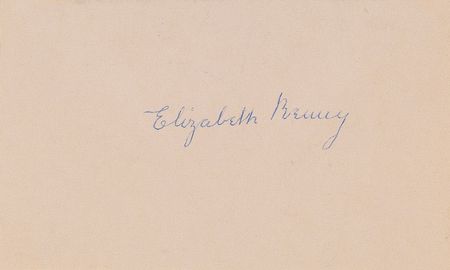 Elizabeth Kenny